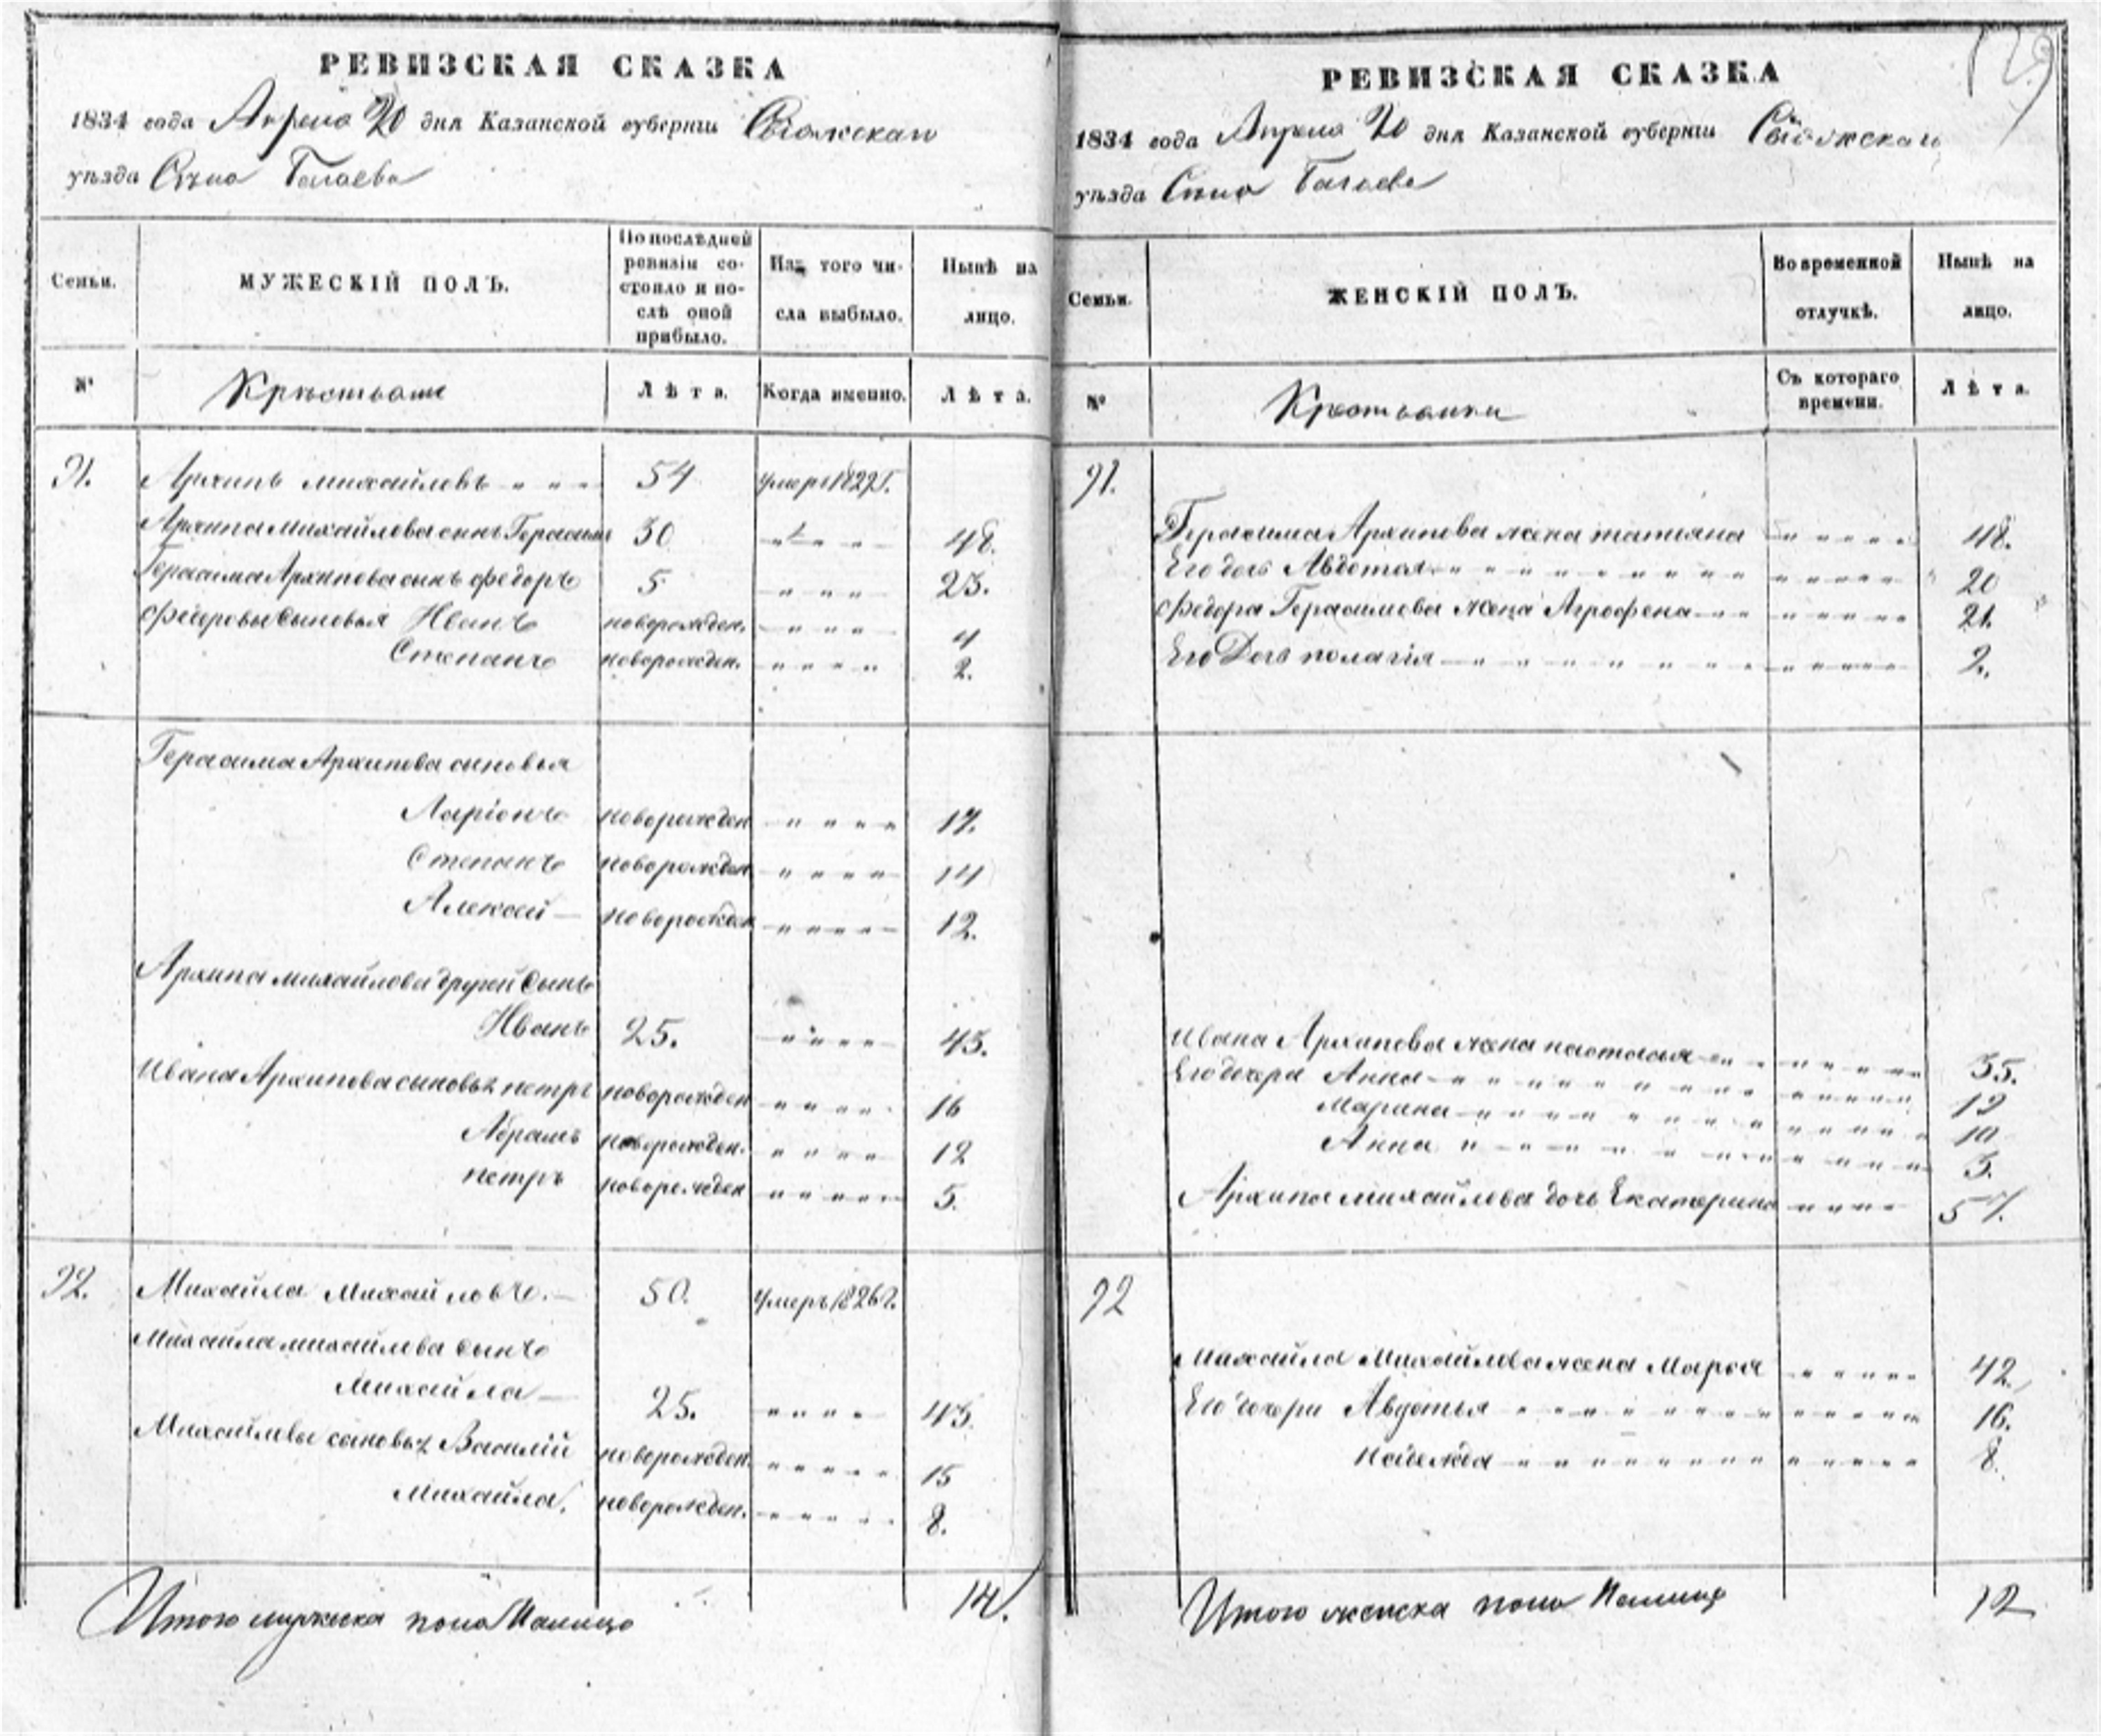 129
РЕВИЗСКАЯ СКАЗКА
1834 года Апреля 20 дня Казанской губерніи Свіяжскаго
уѣзда Село
Семьи.
МУЖЕСКІЙ ПОЛЪ.
По послѣдней ревизіи со-
стояло и по-
слѣ оной
прибыло.
Изъ того чи-
сла выбыло.
Нынѣ на
лицо.
№
Крестьяне
Лѣта.
Когда именно.
Лѣта.
91. Архипъ Михайловъ 54 умеръ
Архипа Михайлова сынъ Герасимъ 30 48.
Герасима Архипова сынъ Федоръ 5 23.
Федоровы сыновья Иванъ новорожден. 4
Степанъ новорожден. 2.
Герасима Архипова сыновья
Ларіонъ новорожден 17.
Степанъ новорожден 14
Алексей новорожден 12.
Архипа Михайлова другой сынъ
Иванъ 25. 43.
Ивана Архипова сыновья Петръ новорожден 16
Абрамъ новорожден. 12
Петръ новорожден 5.
92. Михайла Михайловъ. 50. умеръ 1826 г.
Михайла Михайлова сынъ
Михайла 25. 43.
Михайлы сыновья Василій новорожден. 15
Михайла. новорожден. 8.
Итого мужеска пола налицо 14.
РЕВИЗСКАЯ СКАЗКА
1834 года Апреля 20 дня Казанской губерніи Свіяжскаго
уѣзда Село
Семьи.
ЖЕНСКІЙ ПОЛЪ.
Во временной
отлучкѣ.
Нынѣ на
лицо.
№
Крестьянки
Съ котораго
времени.
Лѣта.
91.
Герасима Архипова жена Татіана 48.
Его дочь Авдотья 20
Федора Герасимова жена Аграфена 21.
Его дочь Полагія 2.
Ивана Архипова жена Настасья 35.
Его дочери Анна 12
Марина 10
Анна 3.
Архипа Михайлова дочь Екатерина
92
Михайла Михайлова жена Марья 42.
Его дочери Авдотья 16.
Надежда 8.
Итого женска пола налицо 12